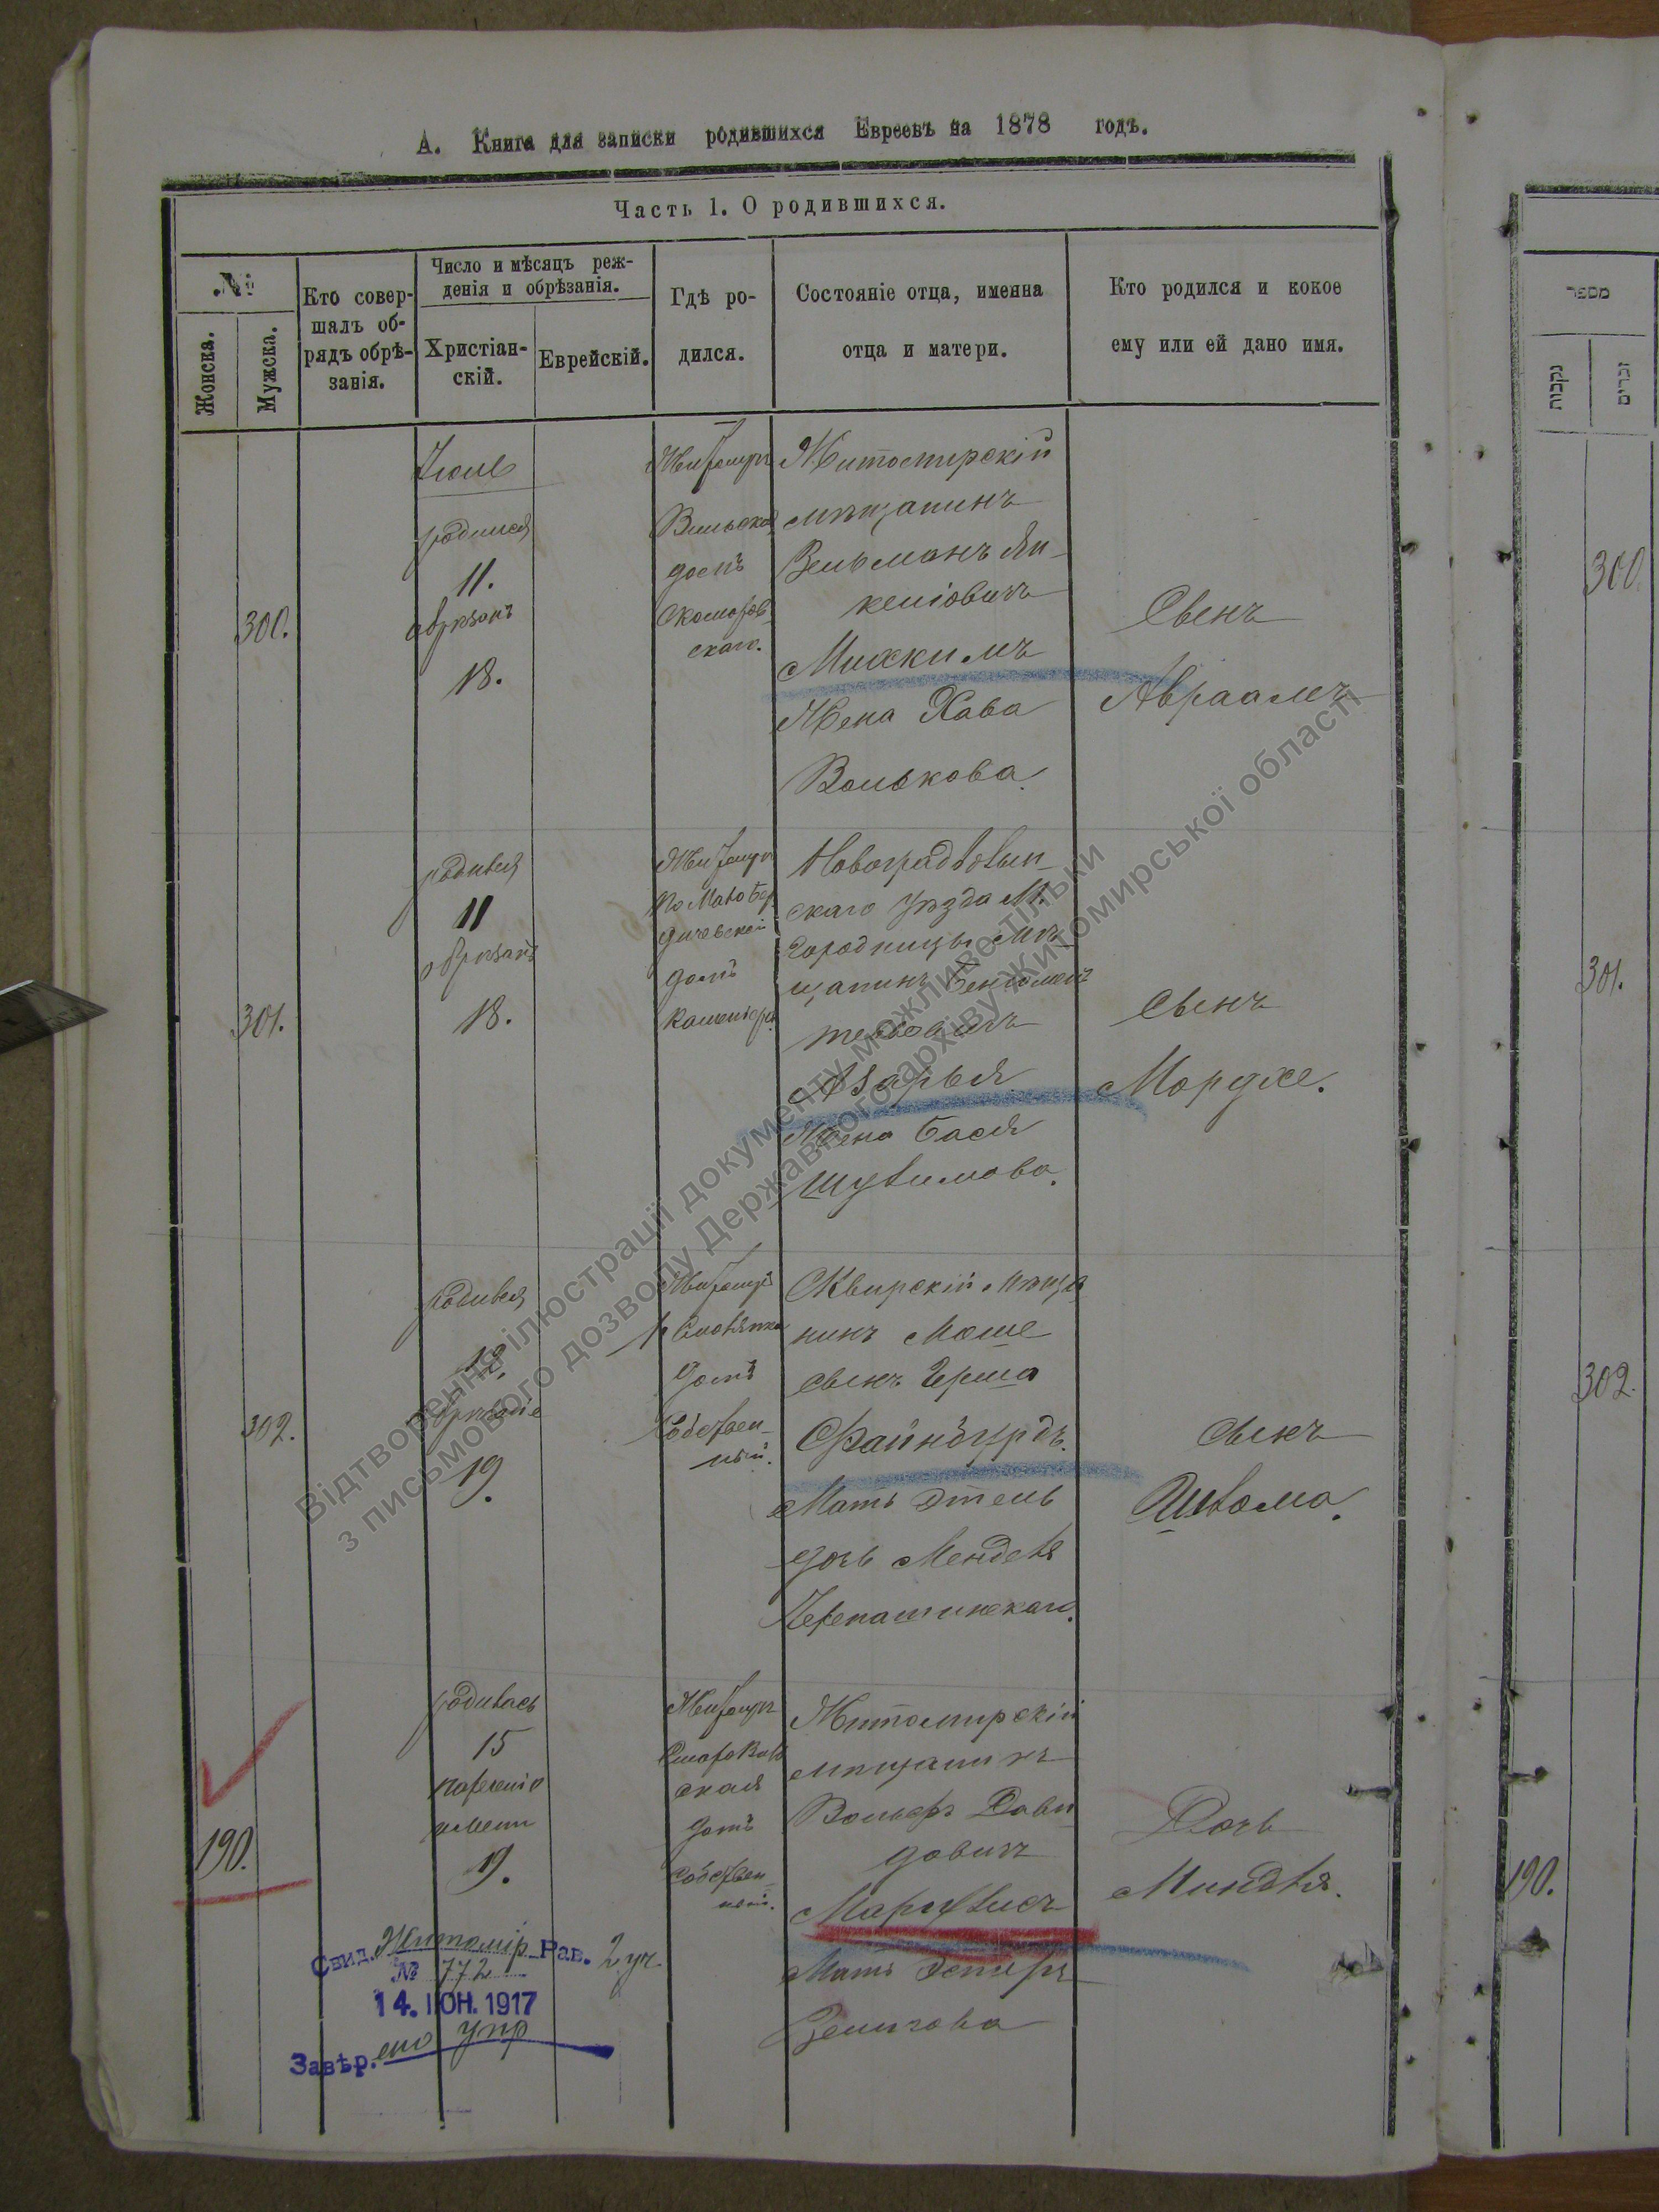 А. Книга для записки родившихся Евреевъ на 1878 годъ.
Часть 1. О родившихся.
№
Жонска.
Мужска.
Кто совер-
шалъ об-
рядъ обрѣ-
занія.
Число и мѣсяцъ реж-
денія и обрѣзанія.
Христіан-
скій.
Еврейскій.
Гдѣ ро-
дился.
Состояніе отца, именна
отца и матери.
Кто родился и кокое
ему или ей дано имя.
300.
Іюль
родился
11.
обрѣзанъ
18.
Житомиръ
домъ
Скоморов-
скаго.
Житомирскій
мѣщанинъ
Вельманъ
Жена Хава
Волькова.
Сынъ
Авраамъ
301.
родился
11
обрѣзанъ
18.
Житомиръ
по Мало Бер
дичевской
домъ
Новоградволын-
скаго уѣзда М.
Городницы мѣ-
щанинъ
Азарья
Жена Бася
Шулимова.
Сынъ
Мордхе.
302.
родился
12.
19.
Житомиръ
домъ
Собствен-
ный.
Сквирскій мѣща-
нинъ Моше
сынъ Герша
Файнбурдъ.
Мать Этель
дочь Менделя
Черепашинскаго.
Сынъ
Шлома.
190.
родилась
15
нареченіе
имени
19.
Житомиръ
ская
домъ
Собствен-
ный.
Житомирскій
мѣщанинъ
Вольфъ Дави-
довичъ
Маргулисъ
Мать Эстеръ
Зелигова
Дочь
Миндля.
Свид. Житомір. Рав. 2 уч.
№ 772
14. ІЮН. 1917
Завѣр.
מספר
נקבות
זכרים
300.
301.
302.
190.
Відтворення ілюстрації документу можливе тільки
з письмового дозволу Державного архіву Житомирської області